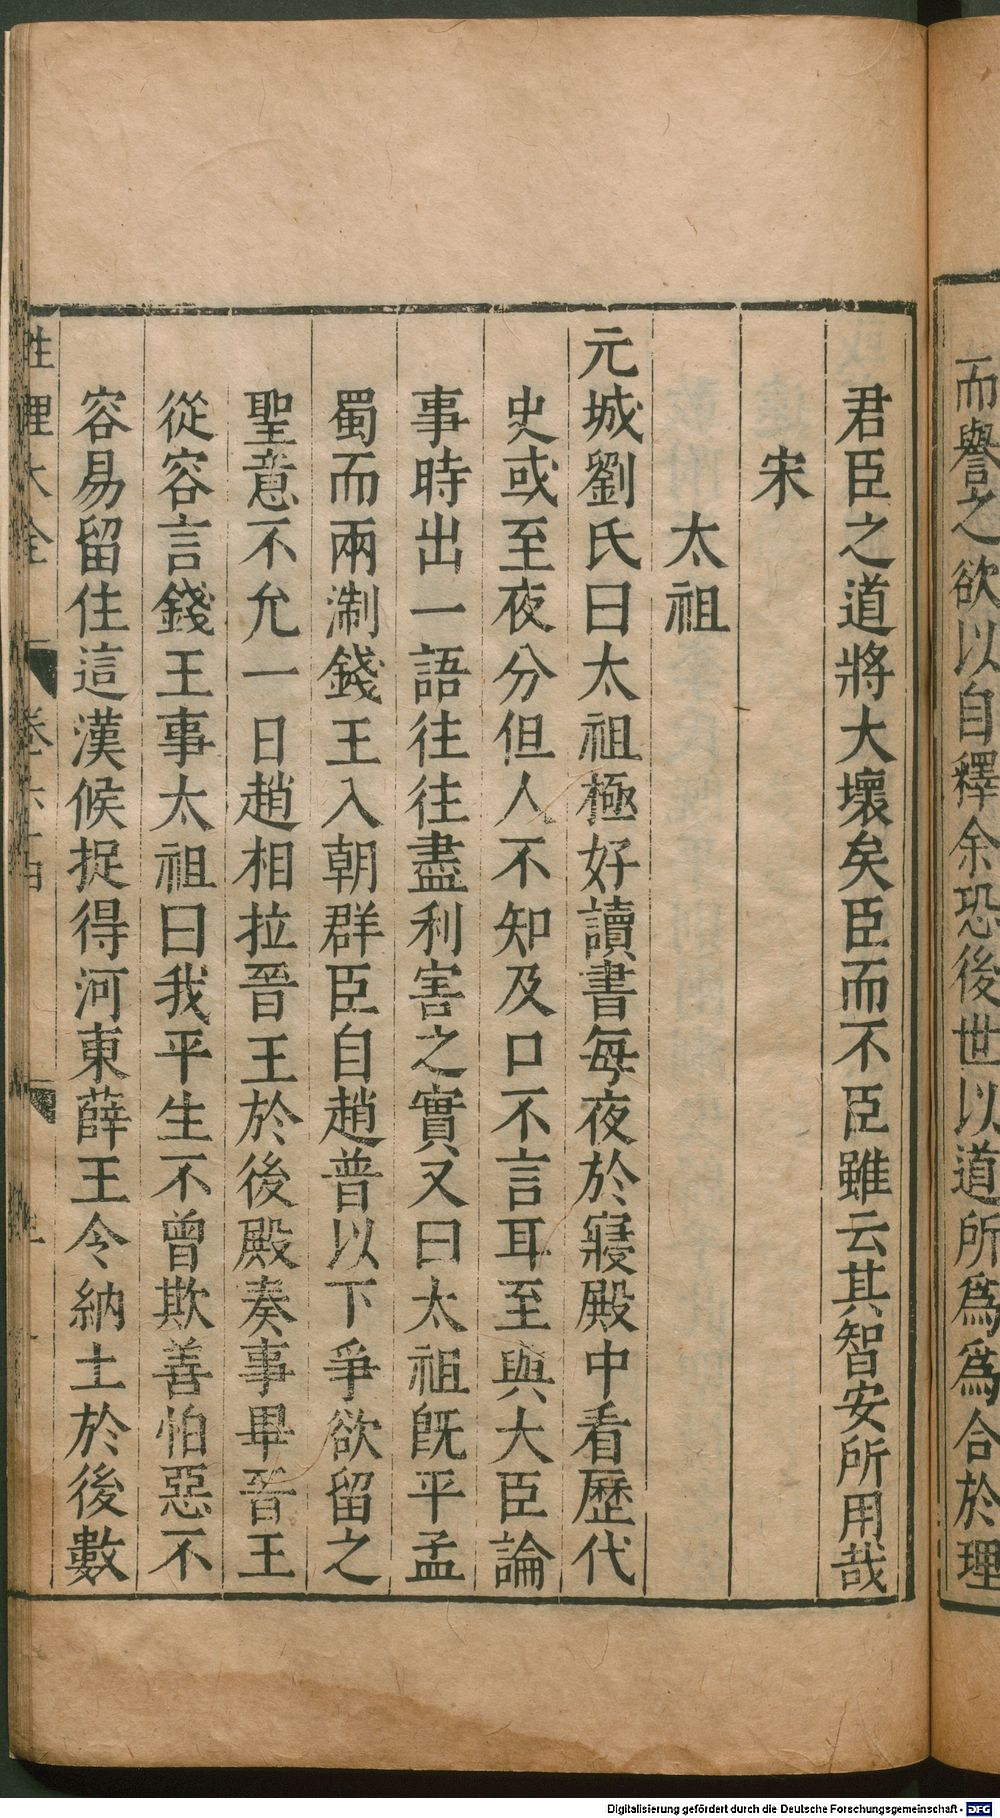 而譽之欲以自釋余恐後世以道所爲爲合於理
君臣之道將大壞矣臣而不臣雖云其智安所用哉
宋
太祖
元城劉氏曰太祖極好讀書每夜於寢殿中看歷代
史或至夜分但人不知及口不言耳至與大臣論
事時出一語往往盡利害之實又曰太祖旣平孟
蜀而兩淛錢王入朝群臣自趙普以下爭欲留之
聖意不允一日趙相拉晉王於後殿奏事畢晉王
從容言錢王事太祖曰我平生不曾欺善怕惡不
容易留住這漢候捉得河東薛王令納土於後數
性理大全 卷六十四
Digitalisierung gefördert durch die Deutsche Forschungsgemeinschaft - DFG